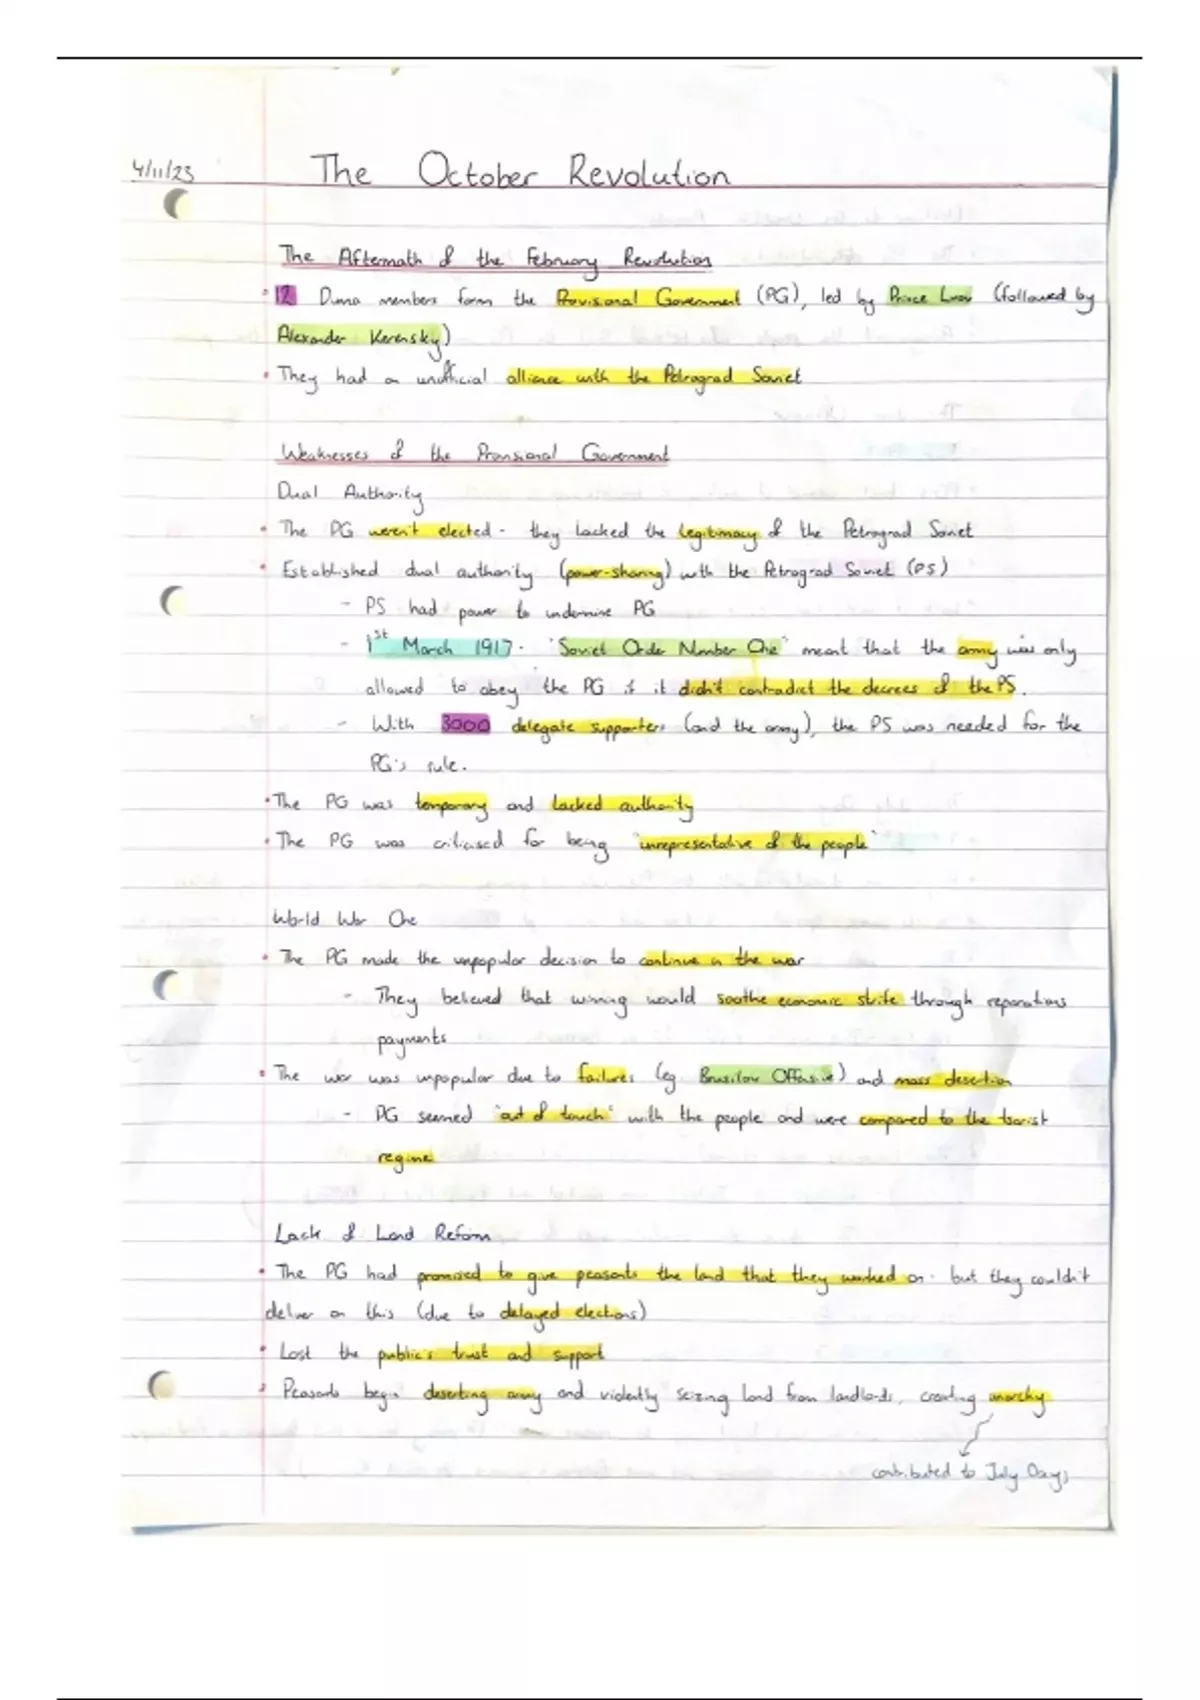 4/11/23
The October Revolution
The Aftermath of the February Revolution
• 12 Duma members form the Provisional Government (PG), led by Prince Lvov (followed by
Alexander Kerensky)
• They had an unofficial alliance with the Petrograd Soviet
Weaknesses of the Provisional Government
Dual Authority
• The PG weren't elected - they lacked the legitimacy of the Petrograd Soviet
• Established dual authority (power-sharing) with the Petrograd Soviet (PS)
- PS had power to undermine PG
- 1st March 1917 - "Soviet Order Number One" meant that the army was only
allowed to obey the PG if it didn't contradict the decrees of the PS.
- With 3000 delegate supporters (and the army), the PS was needed for the
PG's rule.
• The PG was temporary and lacked authority
• The PG was criticised for being "unrepresentative of the people"
World War One
• The PG made the unpopular decision to continue in the war
- They believed that winning would soothe economic strife through reparations
payments
• The war was unpopular due to failures (eg. Brusilov Offensive) and mass desertion
- PG seemed "out of touch" with the people and were compared to the tsarist
regime
Lack of Land Reform
• The PG had promised to give peasants the land that they worked on - but they couldn't
deliver on this (due to delayed elections)
• Lost the public's trust and support
• Peasants begin deserting army and violently seizing land from landlords, creating anarchy
contributed to July Days